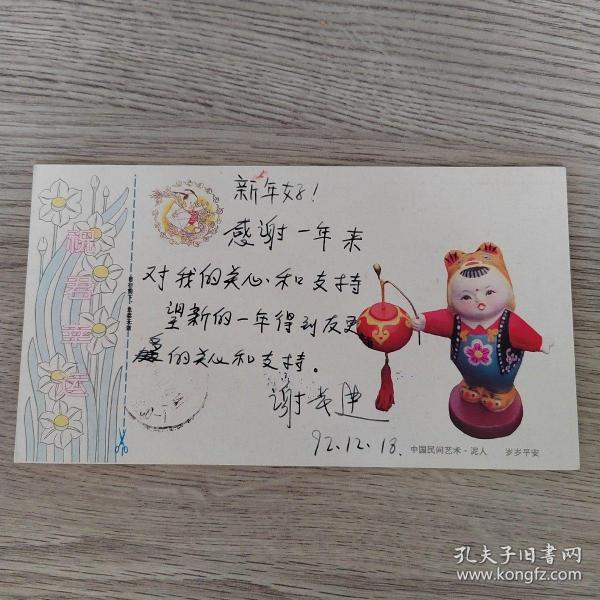 新年好！
感谢一年来
对我的关心和支持
望新的一年得到友更
多的关心和支持。
谢
92.12.18.
中国民间艺术·泥人 岁岁平安
孔夫子旧书网
www.kongfz.com